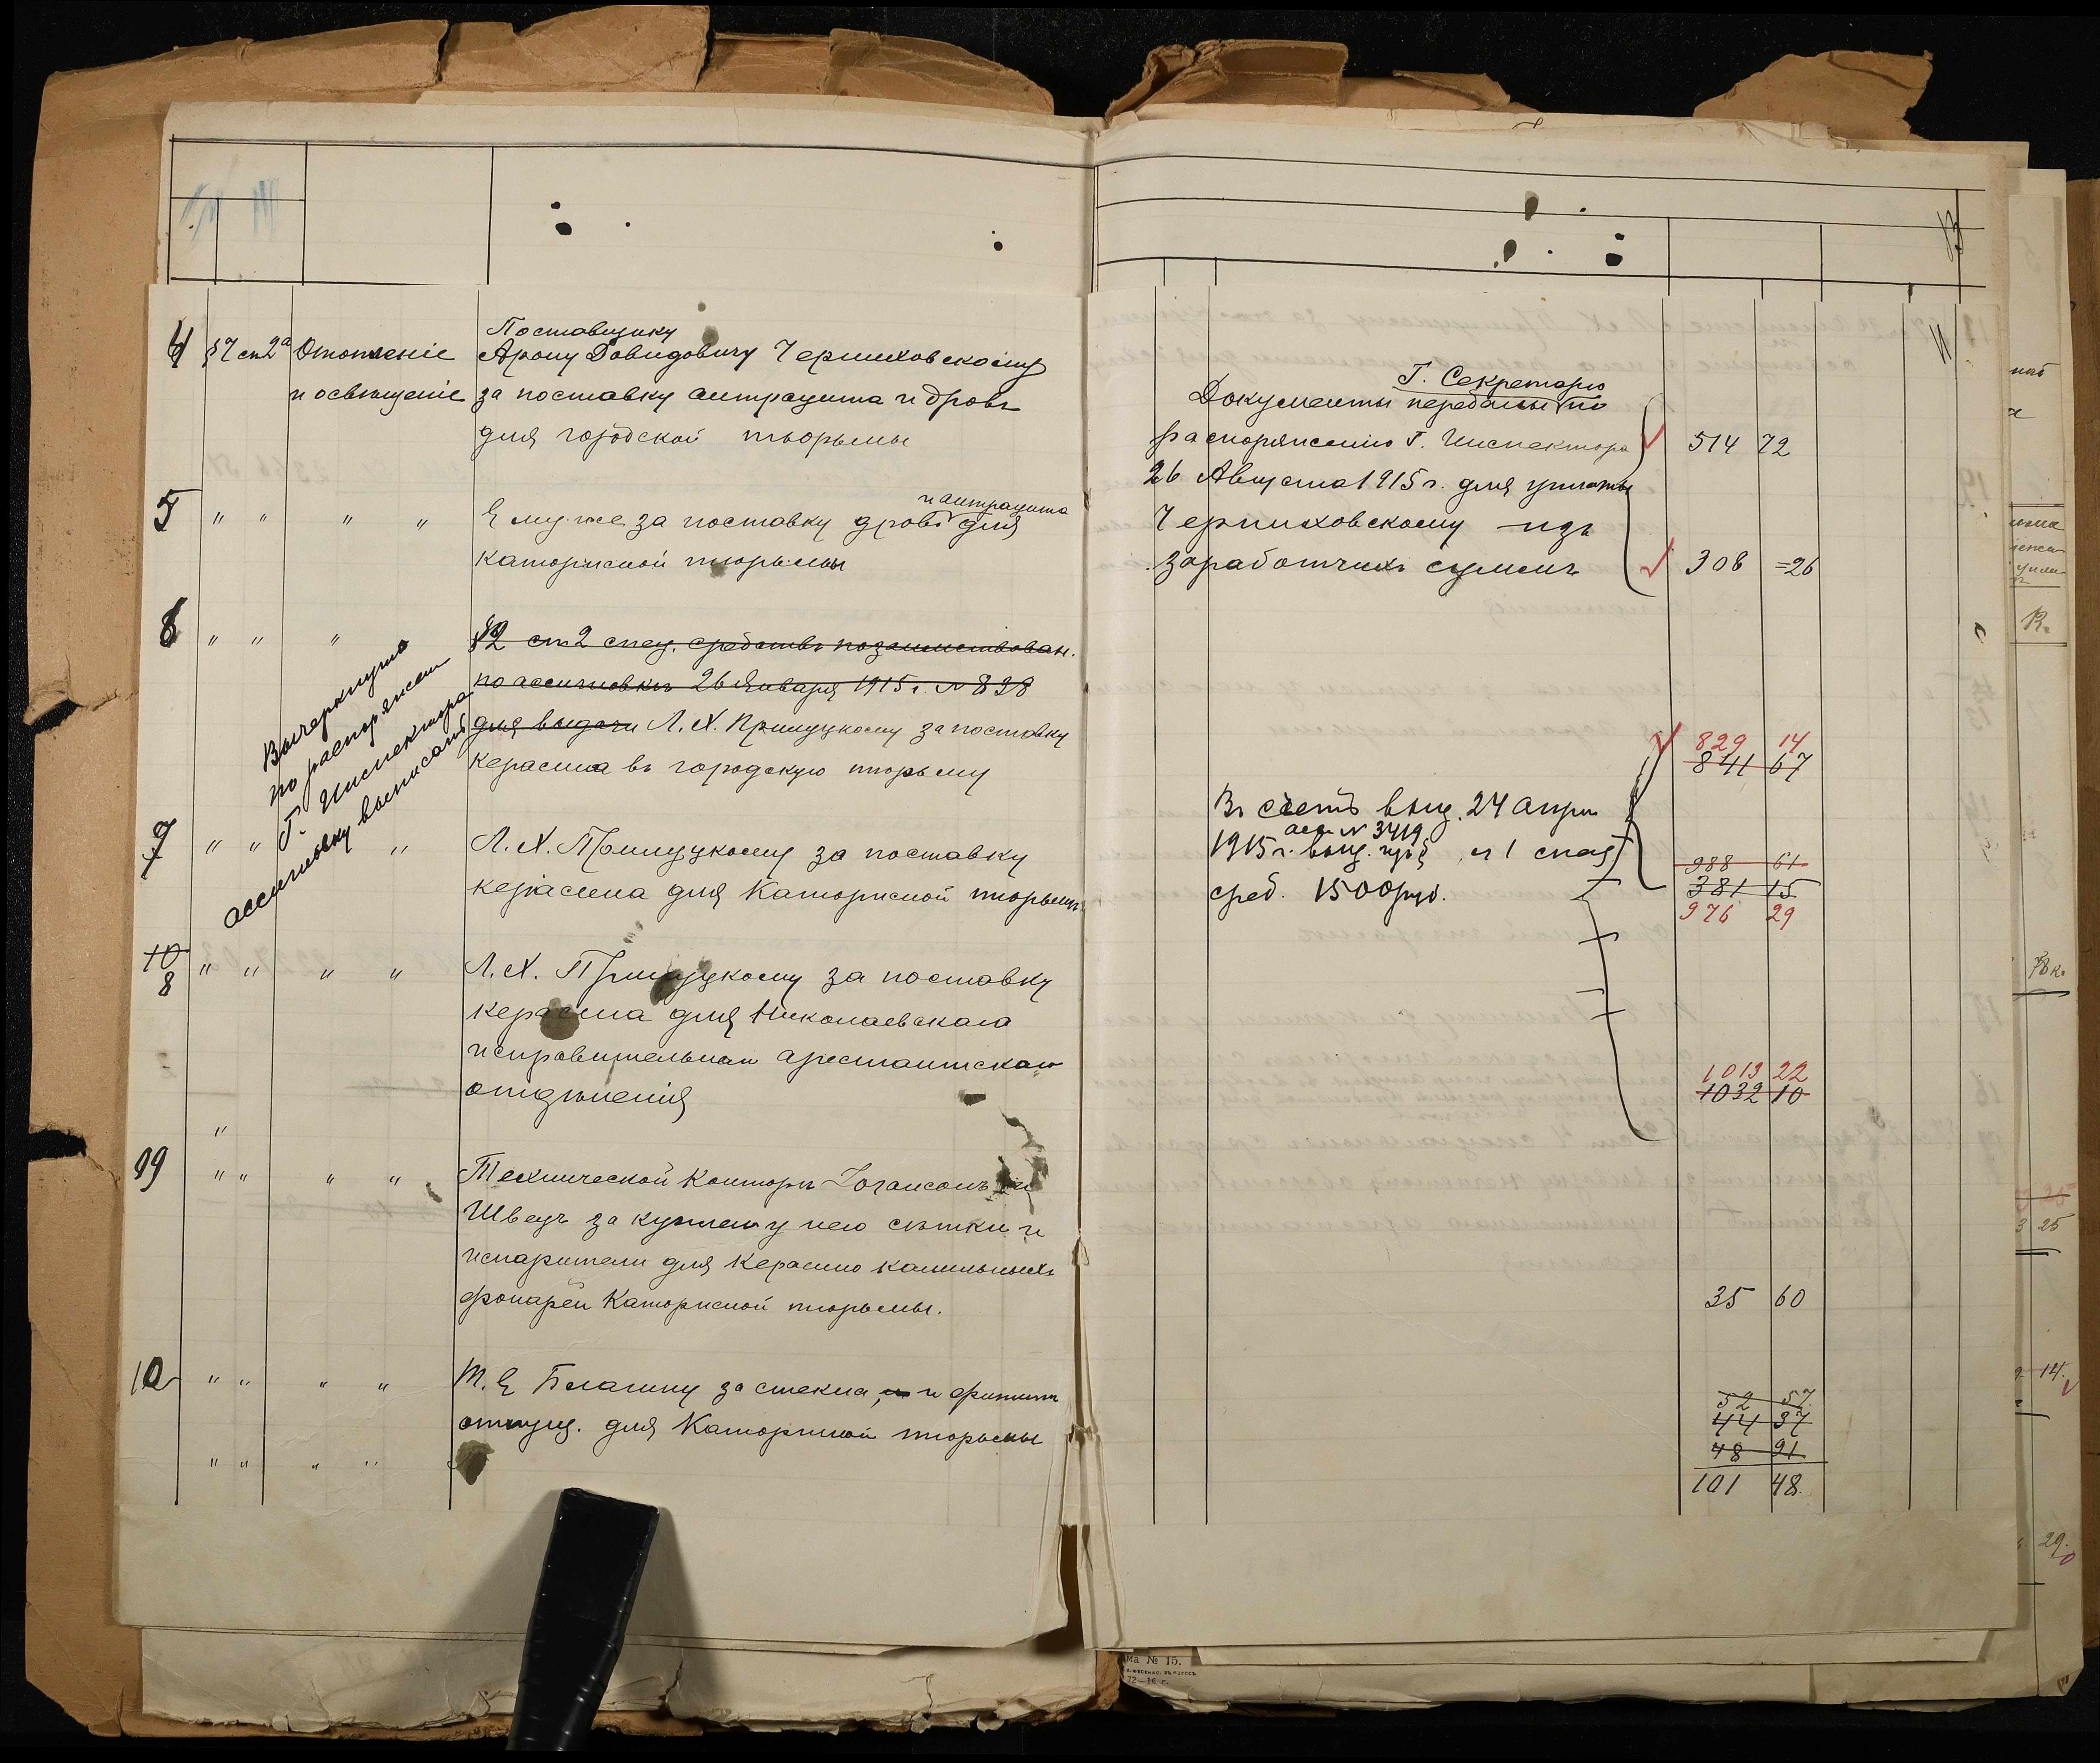 4 §7 ст 2а Отопленіе
и освѣщеніе
Поставщику
Арону Давидовичу Черниховскому
за поставку антрацита и дровъ
для городской тюрьмы
5 " " " "
и антрацита
Ему-же за поставку дровъ для
Каторжной тюрьмы
6 " " "
§2 ст 2 спец. средствъ позаимствован.
по ассигновкѣ 26 Января 1915 г. № 838
для выдачи Л. Х. Прилуцкому за поставку
керасина въ городскую тюрьму
Вычеркнуто
по распоряжен
Г. Инспектора
ассигновку выписать
7 " " "
Л. Х. Прилуцкому за поставку
керасина для Каторжной тюрьмы
10
8 " " " "
Л. Х. Прилуцкому за поставку
керасина для Николаевскаго
исправительнаго арестантскаго
отдѣленія
"
9 " " " "
Технической Конторѣ Іогансонъ и
Швецъ за купленн у нею сѣтки и
испарители для Керасино калильныхъ
фонарей Каторжной тюрьмы.
10 " " " "
Т. Е Благину за стекла, и фитили
отпущ. для Каторжной тюрьмы
" " " "
11
Г. Секретарю
Документы переданы по
распоряженію Г. Инспектора
26 Августа 1915 г. для уплаты
Черниховскому изъ
заработчихъ суммъ
514 72
308 =26
829 14
841 67
Въ счетъ выд. 24 апрѣ
асс № 3419
1915 г. выд. изъ § ст 1 спец
сред. 1500 руб.
988 61
381 15
976 29
1013 22
1032 10
35 60
52 57
44 37
48 91
101 48.
ма № 15.